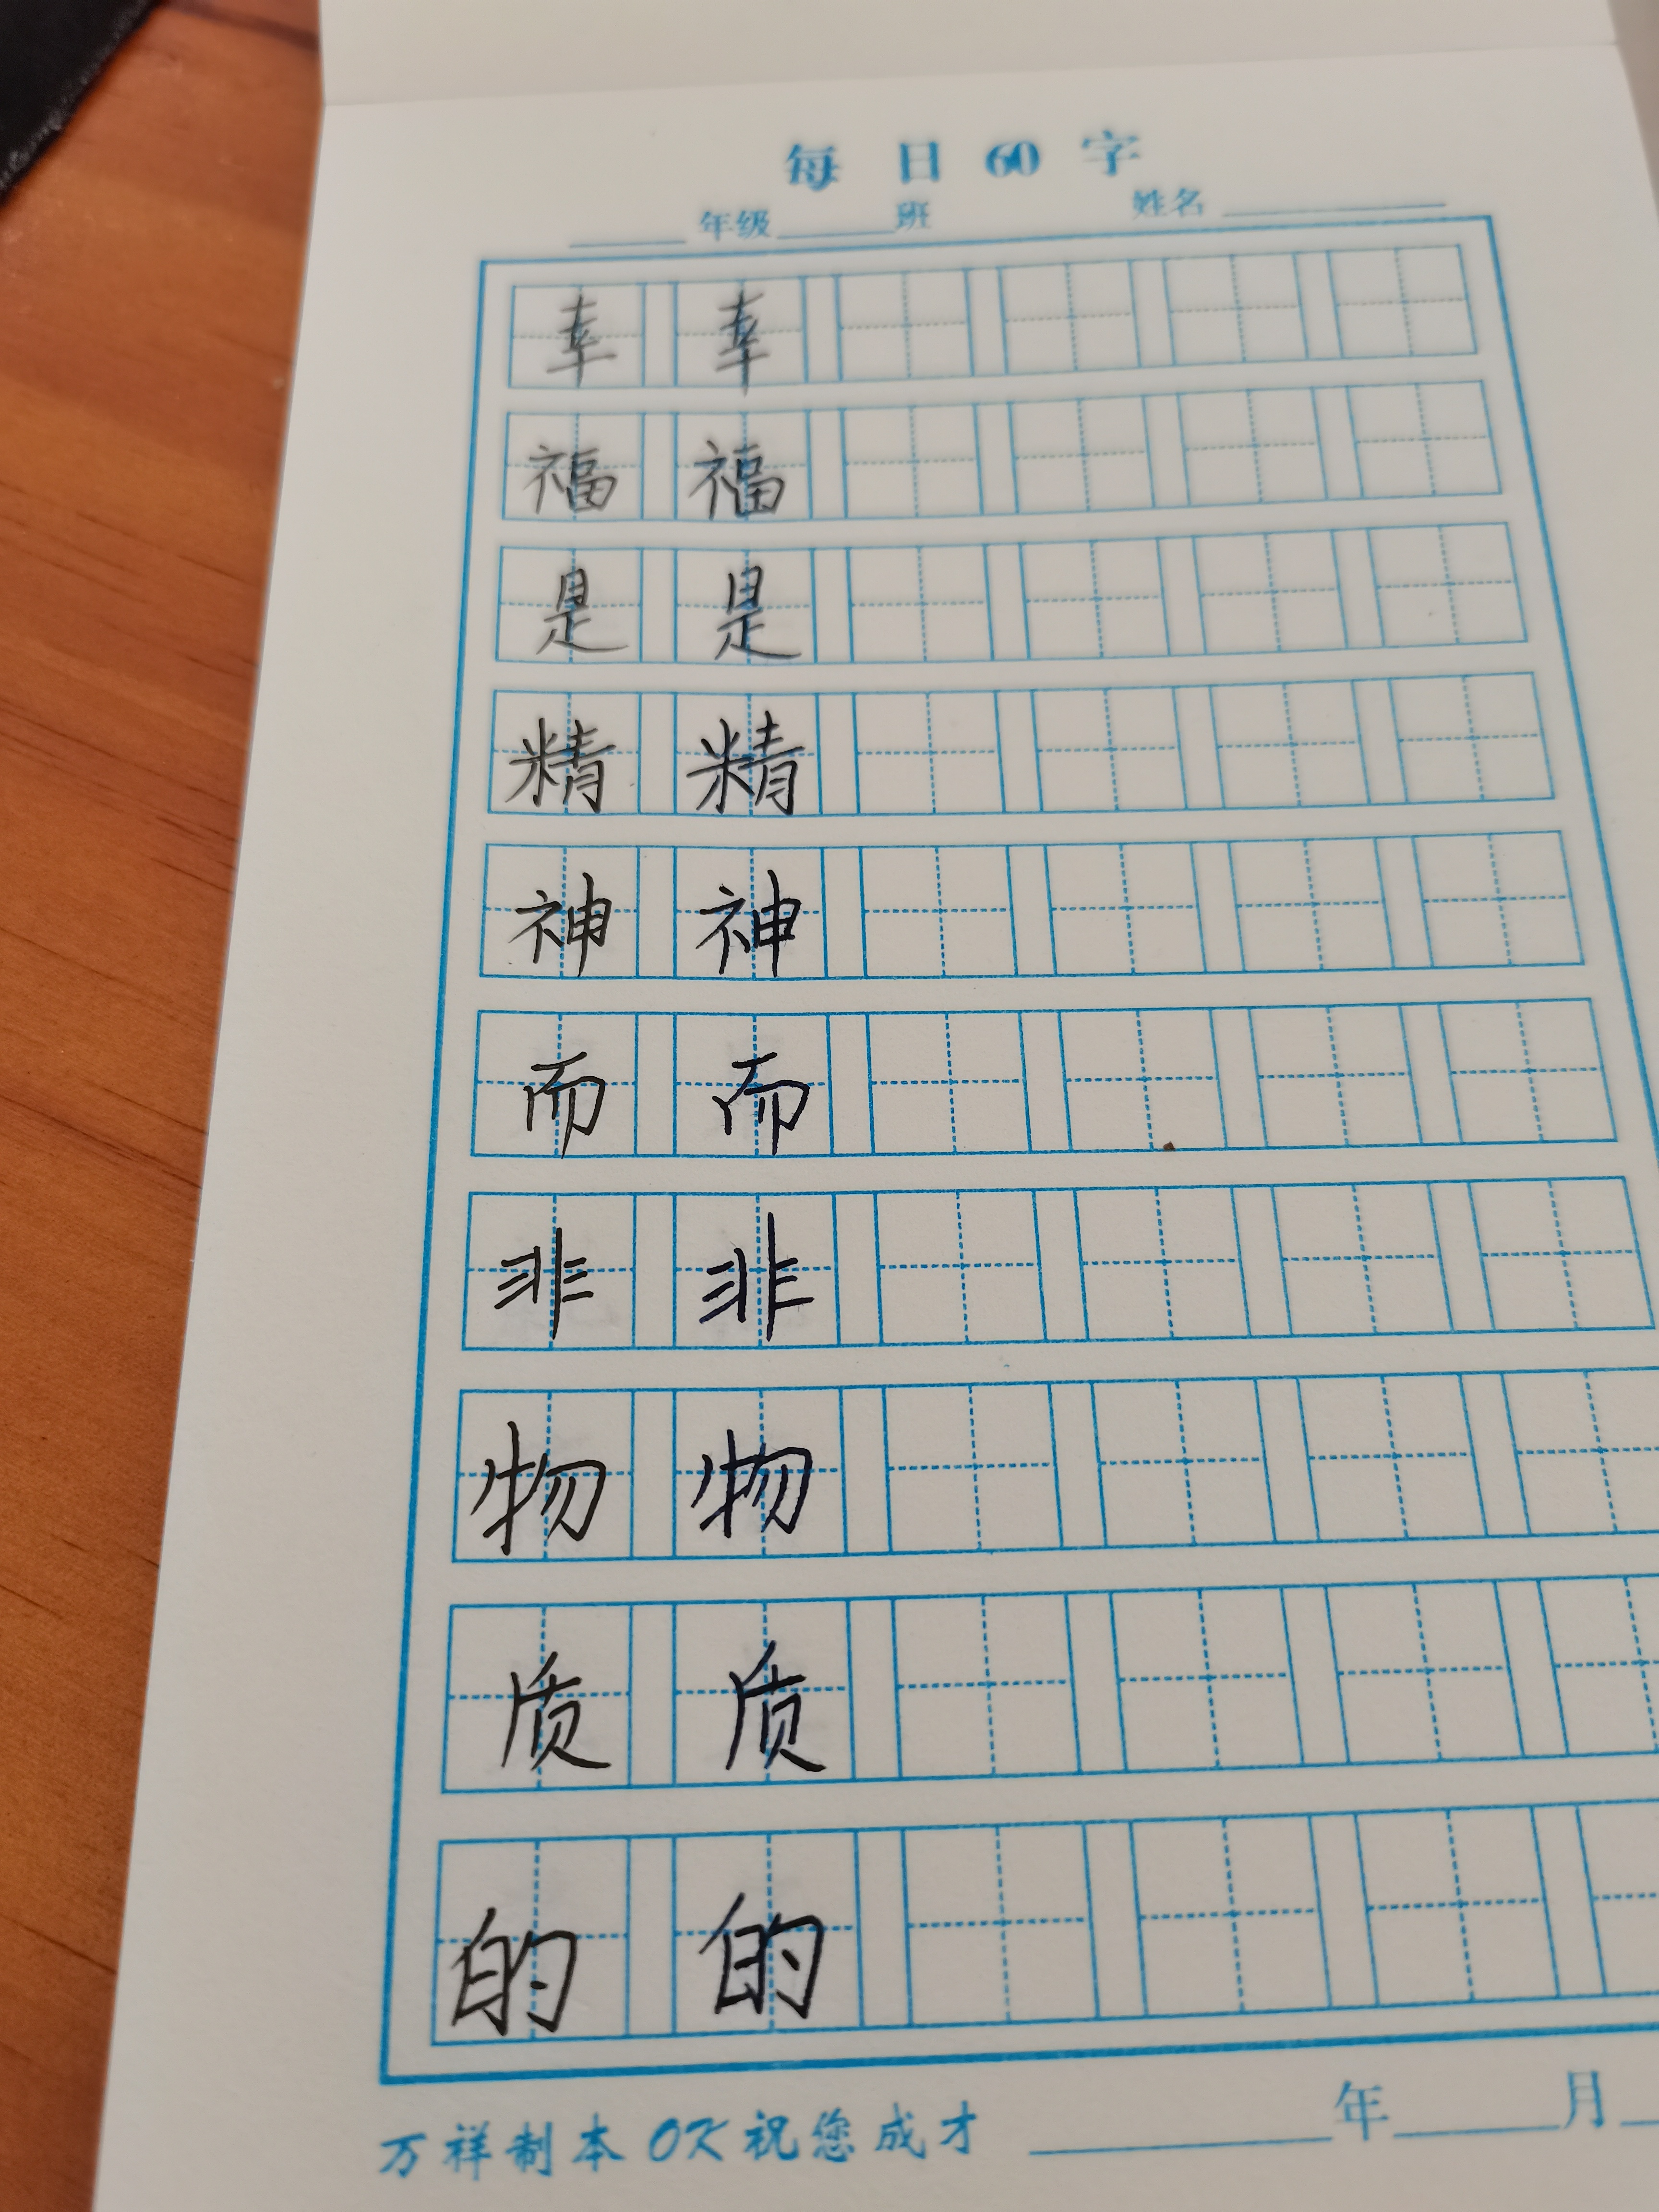 每日60字
年级 班 姓名
幸 幸
福 福
是 是
精 精
神 神
而 而
非 非
物 物
质 质
的 的
万祥制本 OK祝您成才 年 月